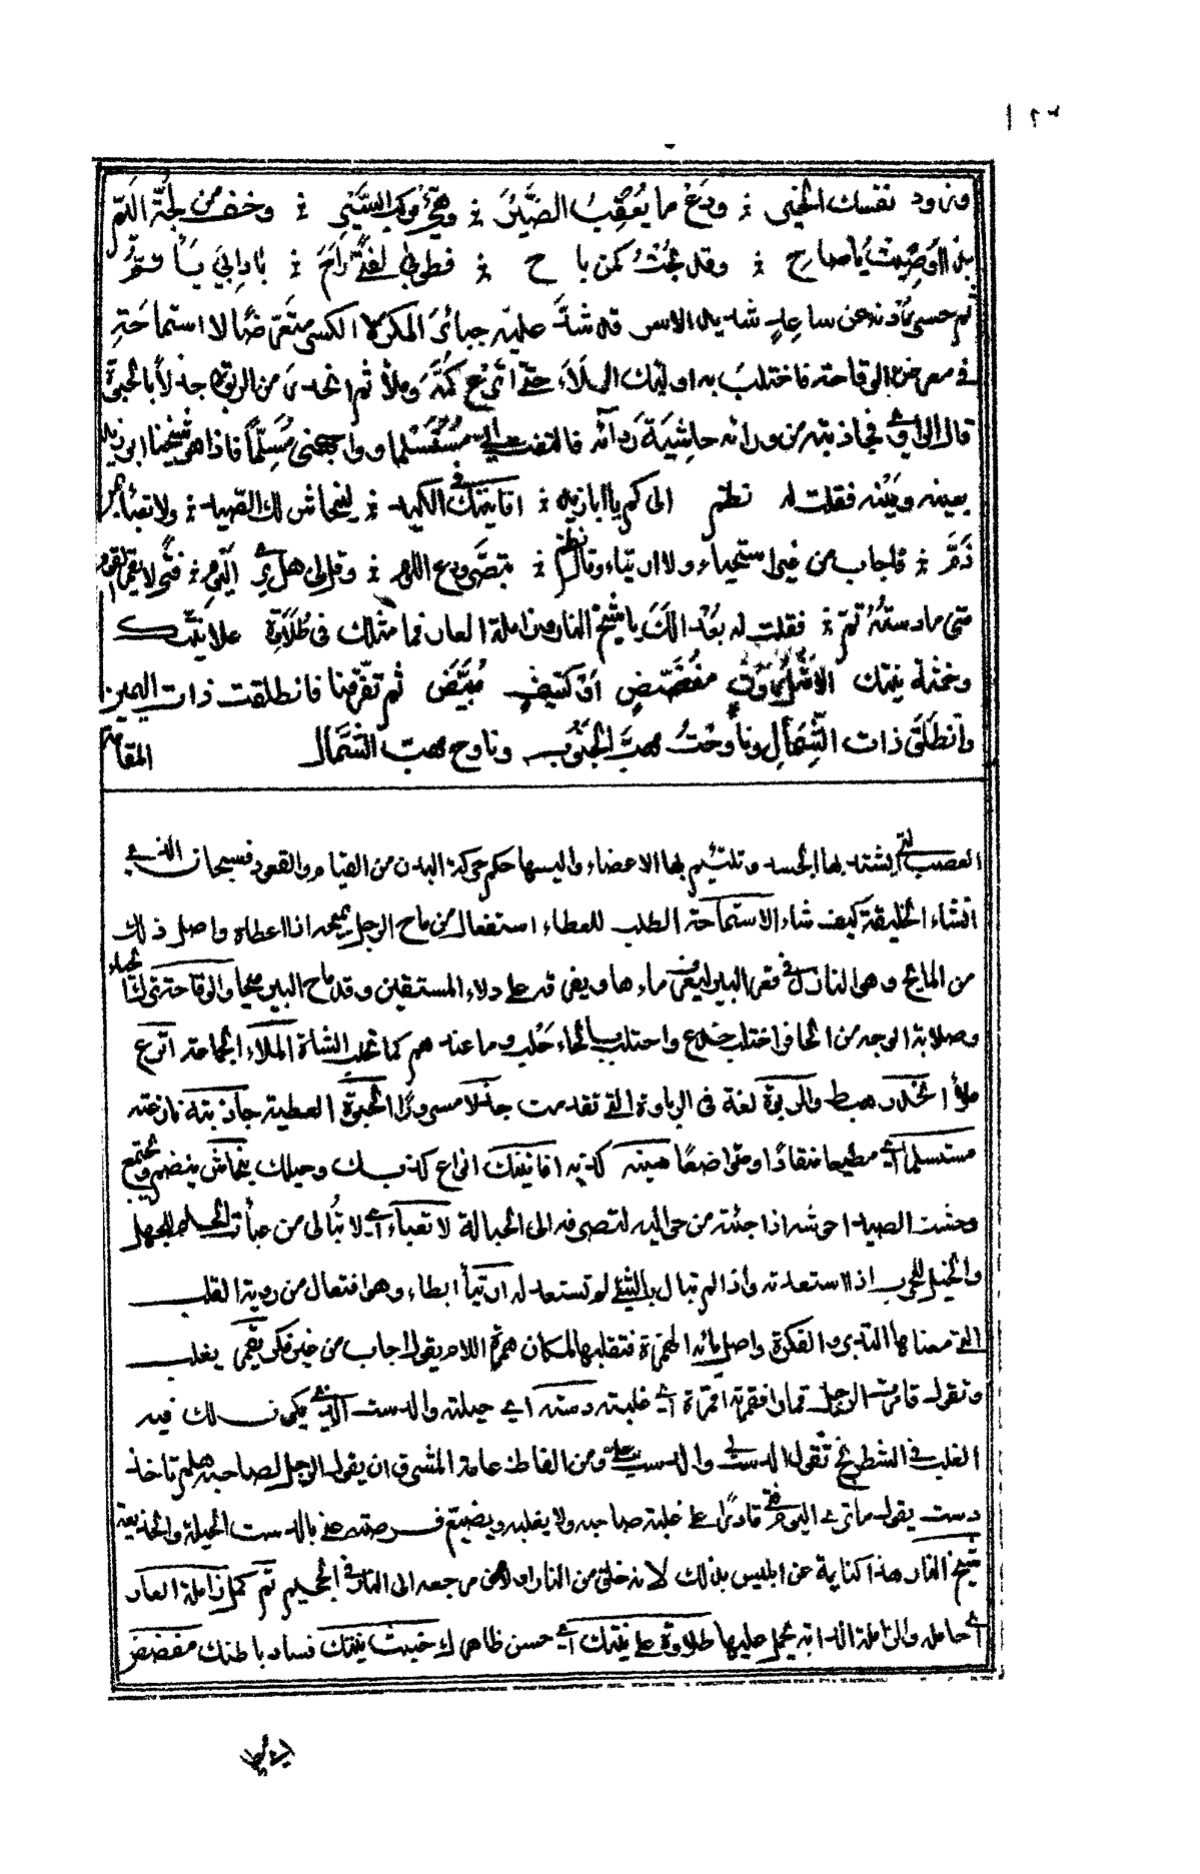 ١٢٣
وزود نفسك الخير ؞ ودع ما يعقب الضير ؞ وهيّئ مركب السير ؞ وخف من لجة اليم
بذا اوصيت يا صاح ؞ وقد بحت كمن باح ؞ فطوبى لفتى راح ؞ بآدابي يأتم
ثم حسر ردنه عن ساعد شديد الاسر قد شد عليه جبائر المكر لا الكسر متعرضا للاستماحة
في معرض الوقاحة فاختلب به اولئك الملاء حتى أترع كمه وملأ ثم انحدر من الربوة جذلا بالحبوة
قال الراوي فجاذبته من ورائه حاشية ردائه فالتفت الي مستسلما وواجهني مسلّما فاذا هو شيخنا ابو زيد
بعينه ومينه فقلت له نظم الى كم يا ابا زيد ؞ افانينك في الكيد ؞ لينحاش لك الصيد ؞ ولا تعبأ بمن
ذمّ ؞ فاجاب من غير استحياء ولا ارتياء وقال نظم ؞ تبصر ودع اللوم ؞ وقل لي هل ترى اليوم ؞ فتى لا يقمر القوم
متى ما دسته تم ؞ فقلت له بعدا لك يا شيخ النار وزاملة العار فما مثلك في طلاوة علانيتك
وخبث نيتك الا مثل روث مفضض او كنيف مبيّض ثم تفرقنا فانطلقت ذات اليمين
وانطلق ذات الشمال وناوحت مهبّ الجنوب وناوح مهبّ الشمال المقامة
العصب التي يشتد بها الجسد وتلتئم بها الاعضاء واليسها حكم حركة البدن من القيام والقعود فسبحان الذي
انشاء الخليقة كيف شاء الاستماحة الطلب للعطاء استفعال من ماح الرجل يميحه اذا اعطاه واصل ذلك
من المائح وهو النازل في قعر البير ليغرف ماءها ويفرقه على دلاء المستقين وقد ماح البير ميحا والوقاحة
وصلابة الوجه من الحافر اختلب خدع واحتلب بالحاء حلب وما عندهم كما تحلب الشاة الملاء الجماعة اترع
ملأ انحدر هبط والربوة لغة في الرباوة التي تقدمت جذلا مسرورا الحبوة العطية جاذبته نازعته
مستسلما اي مطيعا منقادا ومتواضعا مينه كذبه افانينك انواع كذبك وحيلك ينحاش ينضم ويجتمع
وحشت الصيد احوشه اذا جئته من حواليه لتصرفه الى الحبالة لا تعباء اي لا تبالي من عبأت الحلم للجهل
والخيل للحرب اذا استعددته واذا لم تبال بالشيء لم تستعد له ارتيأ ابطاء وهو افتعال من روية القلب
التي معناها التدبر والفكرة واصل يائه الهمزة فتقلبها لمكان همزة اللام يقول اجاب من غير فكر يقمر يغلب
وتقول قامرت الرجل قمارا فقمرته اقمره اي غلبته دسته اي حيلته والدست الذي يكون لك فيه
الغلب في الشطرنج تقول الدست لي والدست علي ومن الفاظ عامة المشرق ان يقول الرجل لصاحبه هلم تاخذ
دست يقول ما ترى اليوم فتى قادرا على غلبة صاحبه ولا يغلبه ويضيع فرصته عني بالدست الحيلة والخديعة
شيخ النار هذا كناية عن ابليس بذلك لانه خلق من النار او لان مرجعه الى النار في الجحيم تم كمل زاملة العار
اي حامله والزاملة الدابة يحمل عليها طلاوة علانيتك اي حسن ظاهرك خبث نيتك فساد باطنك مفضض